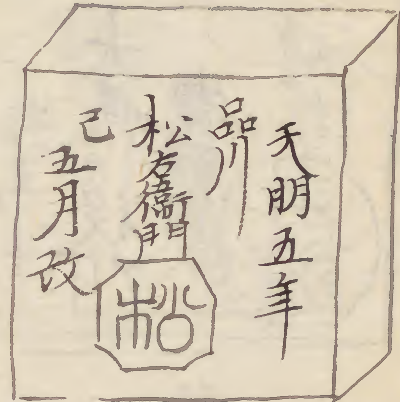 天明五年
品川
松右衛門
松
巳五月改